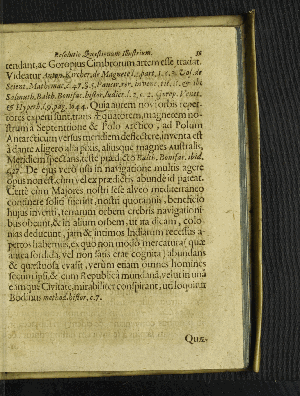 Resolutio Quæstionum Illustrium. 15
tendant, ac Goropius Cimbrorum artem esse tradat.
Videatur Anton. Kircher, de Magnete l. 1. part. 1. c. 3. Gas. de
Scient. Mathemat. c. 47. §. 5. Pancir. rer. invent. tit. 11. & ibi
Salmuth, Balth. Bonifac. histor. ludicr. l. 2. c. 2. Gorop. l. vet.
& Hyperb. l. 9. pag. 1044. Quia autem novi orbis reper-
tores experti sunt, trans Æquatorem, magnetem no-
strum a Septentrione & Polo Arctico, ad Polum
Antarcticum versus meridiem deflectere, inventa est
à dante Aligero alia pixis, aliusque magnes Australis,
Meridiem spectans, teste prædicto Balth. Bonifac. ibid.
c. 27. De ejus verò usu in navigatione multis agere
opus non est, cùm vel ex prædictis abundè id pateat.
Certè cùm Majores nostri sese alveo mediterraneo
continere soliti fuerint, nostri quotannis, beneficio
hujus inventi, terrarum orbem crebris navigationi-
bus obeunt, & in alium orbem, ut ita dicam, colo-
nias deducunt, jam & intimos Indiarum recessus a-
pertos habemus, ex quo non modò mercatura (quæ
antea sordida, vel non satis erat cognita) abundans
& quæstuosa evasit, verùm etiam omnes homines
secum ipsi, & cum Republica mundana, velut in unâ
eâmque Civitate, mirabiliter conspirant, uti loquitur
Bodinus method. histor. c. 7.
Quæ-